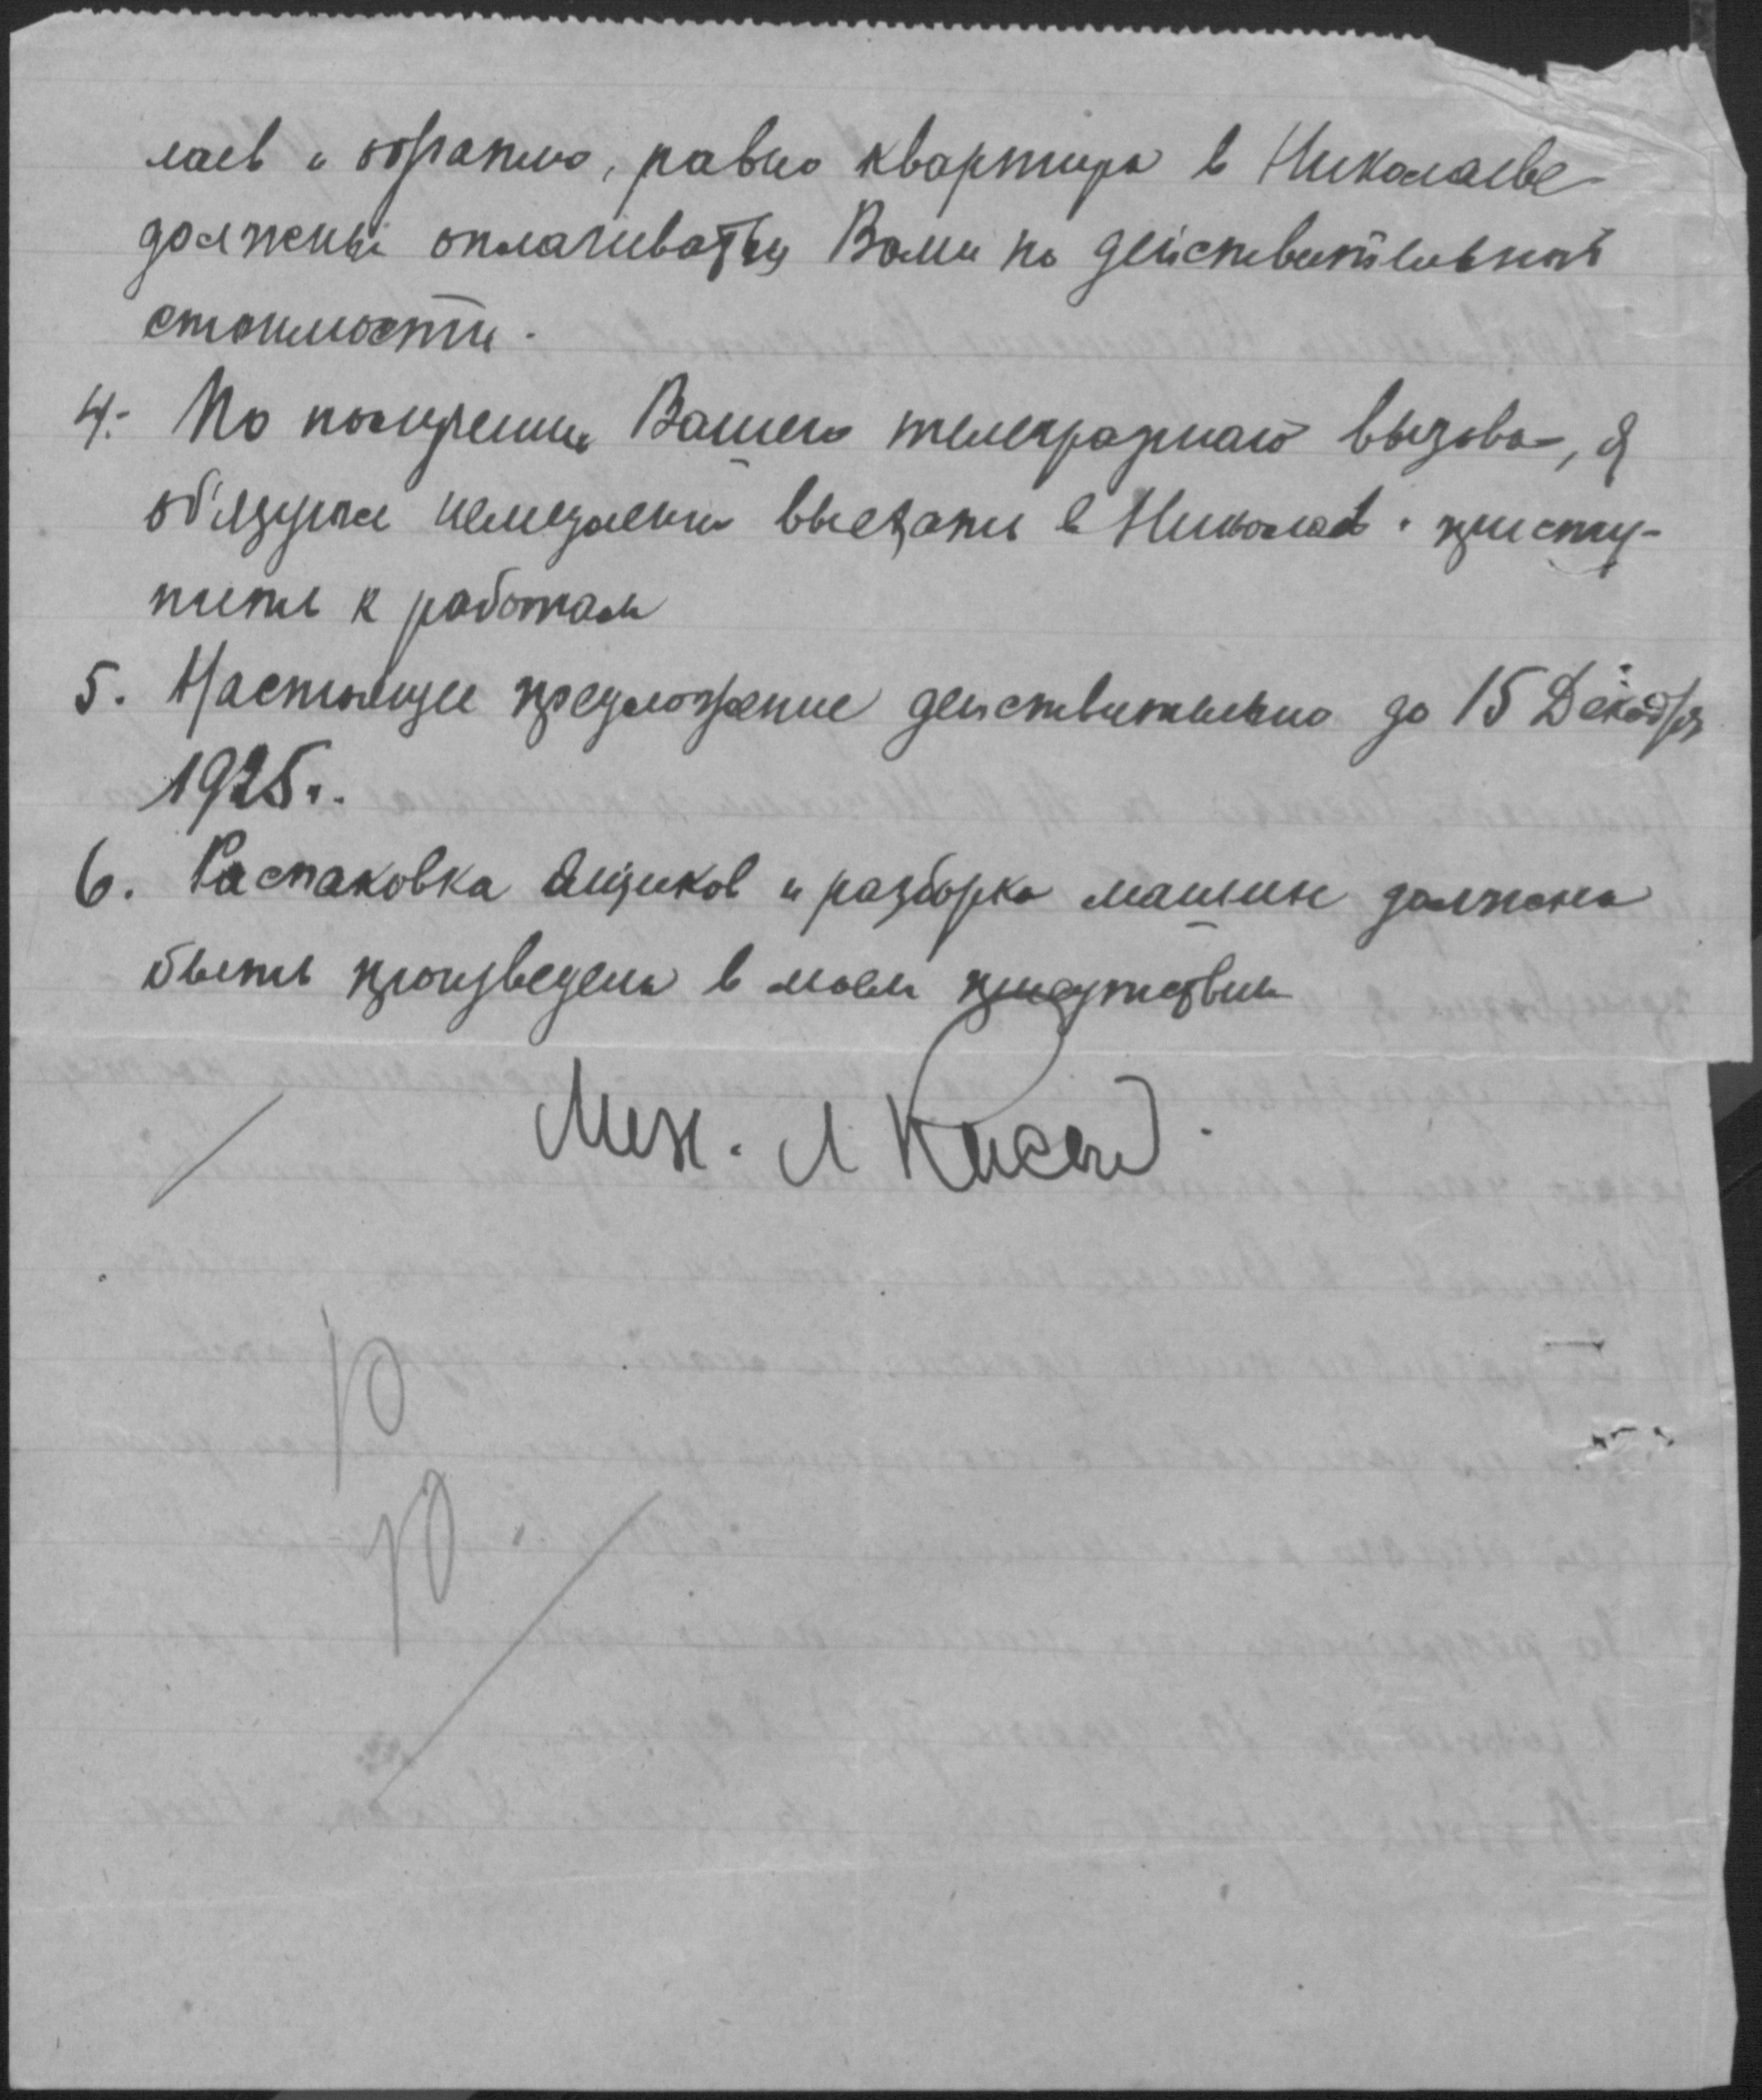 лаев и обратно, равно квартира в Николаеве
должены оплачиваться Вами по действительной
стоимости.
4. По получении Вашего телеграфнаго вызова, я
обязуюсь немедленно выехать в Николаев и присту-
пить к работам
5. Настоящее предложение действительно до 15 Декабря
1925г.
6. Распаковка ящиков и разборка машин должна
быть произведена в моем присутствии
Мех. Л